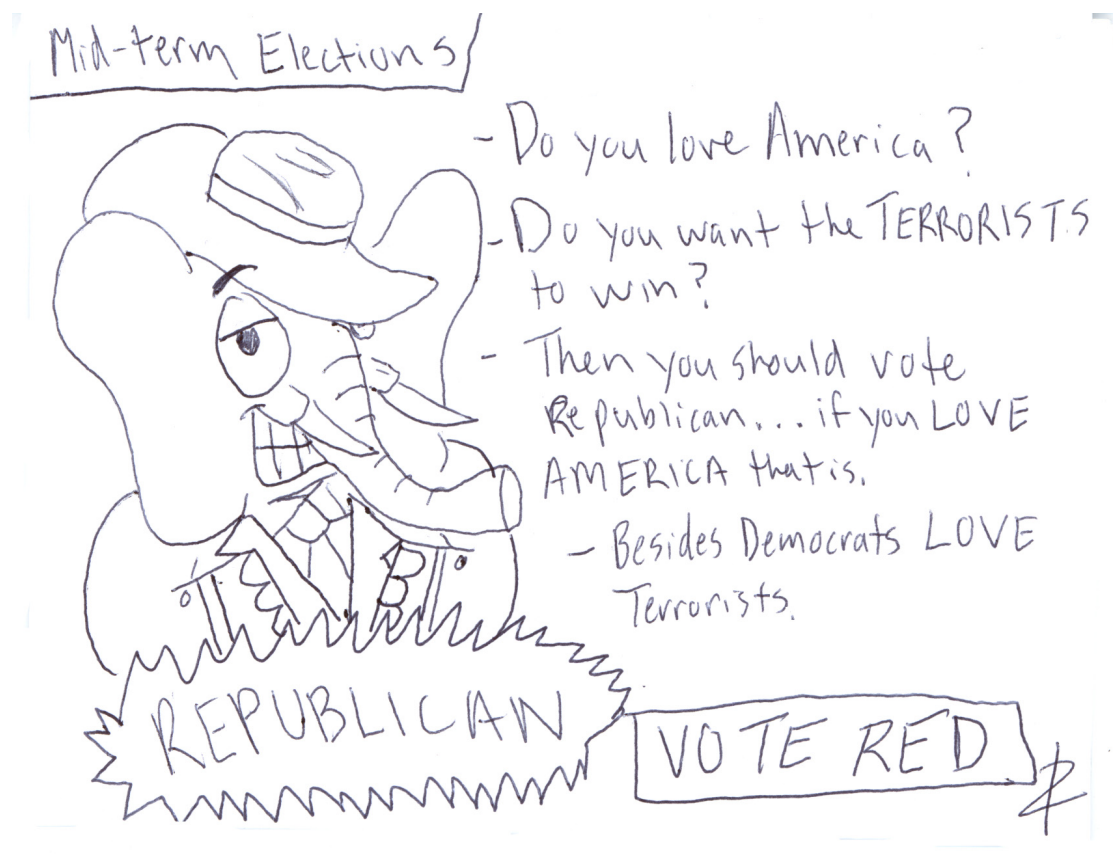 Mid-term Elections
- Do you love America?
- Do you want the TERRORISTS
to win?
- Then you should vote
Republican... if you LOVE
AMERICA that is.
- Besides Democrats LOVE
Terrorists.
REPUBLICAN
VOTE RED